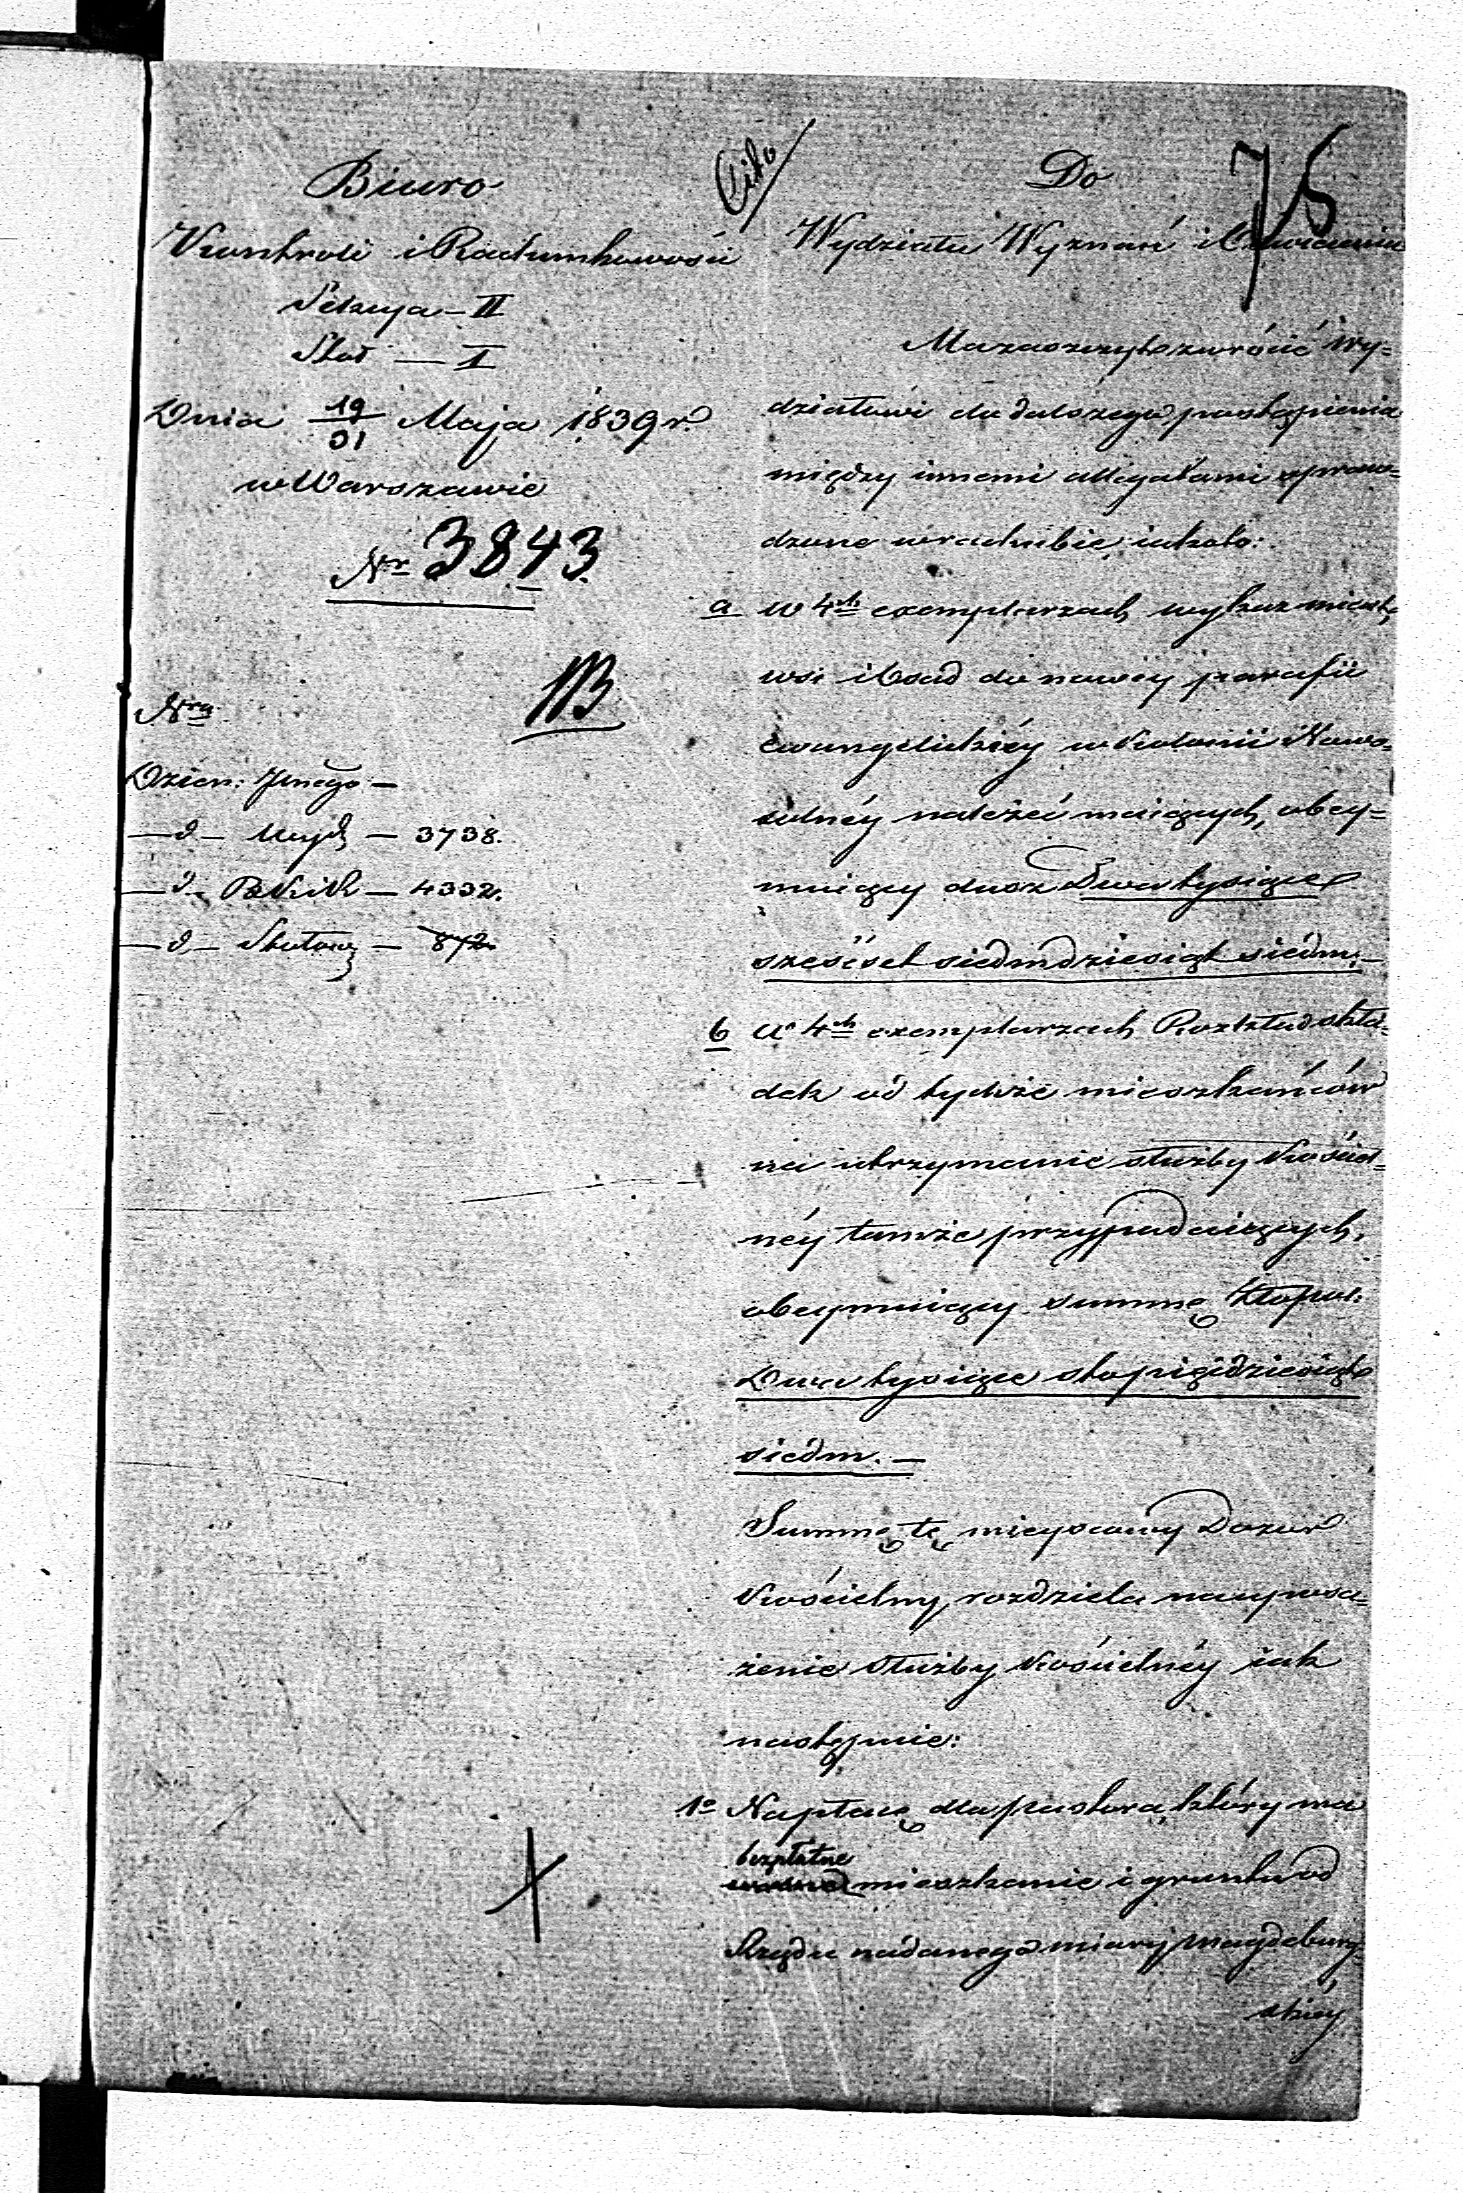 Biuro
Kontroli i Rachunkowości
Sekcya – II
Stół — I
Dnia 19/31 Maja 1839 r.
w Warszawie
Nr 3843.
Nra
Dzien:
— d – Wydz — 3738.
— d – — 4332.
— d –
Cito
75
Do
Wydziału Wyznań i Oświecenia
Ma zaszczyt zwrócić Wy=
działowi do dalszego postąpienia
między innemi allegatami sprawo=
dzone w rachubie, iakoto:
a w 4ch exemplarzach wykaz miast,
wsi i Osad do nowéy parafii
ewangelickiéy w Kolonii Nowo=
solnéy należéć maiących, obey=
muiący dusz Dwa tysiące
sześćset siedmdziesiąt siedm. –
b w 4ch exemplarzach Rozkład skła=
dek od tychże mieszkańców
na utrzymanie służby Kościel=
néy tamże przypadaiących,
obeymuiący summę Złopol:
Dwa tysiące sto pięćdziesiąt
siedm. —
Summę tę mieyscowy Dozór
Kościelny, rozdziela na uposa=
żenie służby Kościelnéy iak
następnie:
1o Na płacę dla pastora, który ma
bezpłatne
mieszkanie i gruntu od
Rządu nadanego miary magdebury
skiey